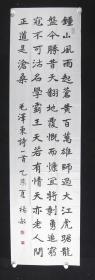 鍾山風雨起蒼黃百萬雄師過大江虎踞龍
盤今勝昔天翻地覆慨而慷宜將剩勇追窮
寇不可沽名學霸王天若有情天亦老人間
正道是滄桑 毛澤東詩一首